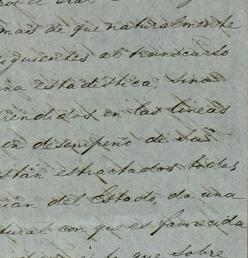 mas de que naturalmente
siguientes al transcurso
na estadística, sino
tendidos en las líneas
en desempeño de las
están estractados todos
del Estado, da una
tural con que es favorecida
que sobre